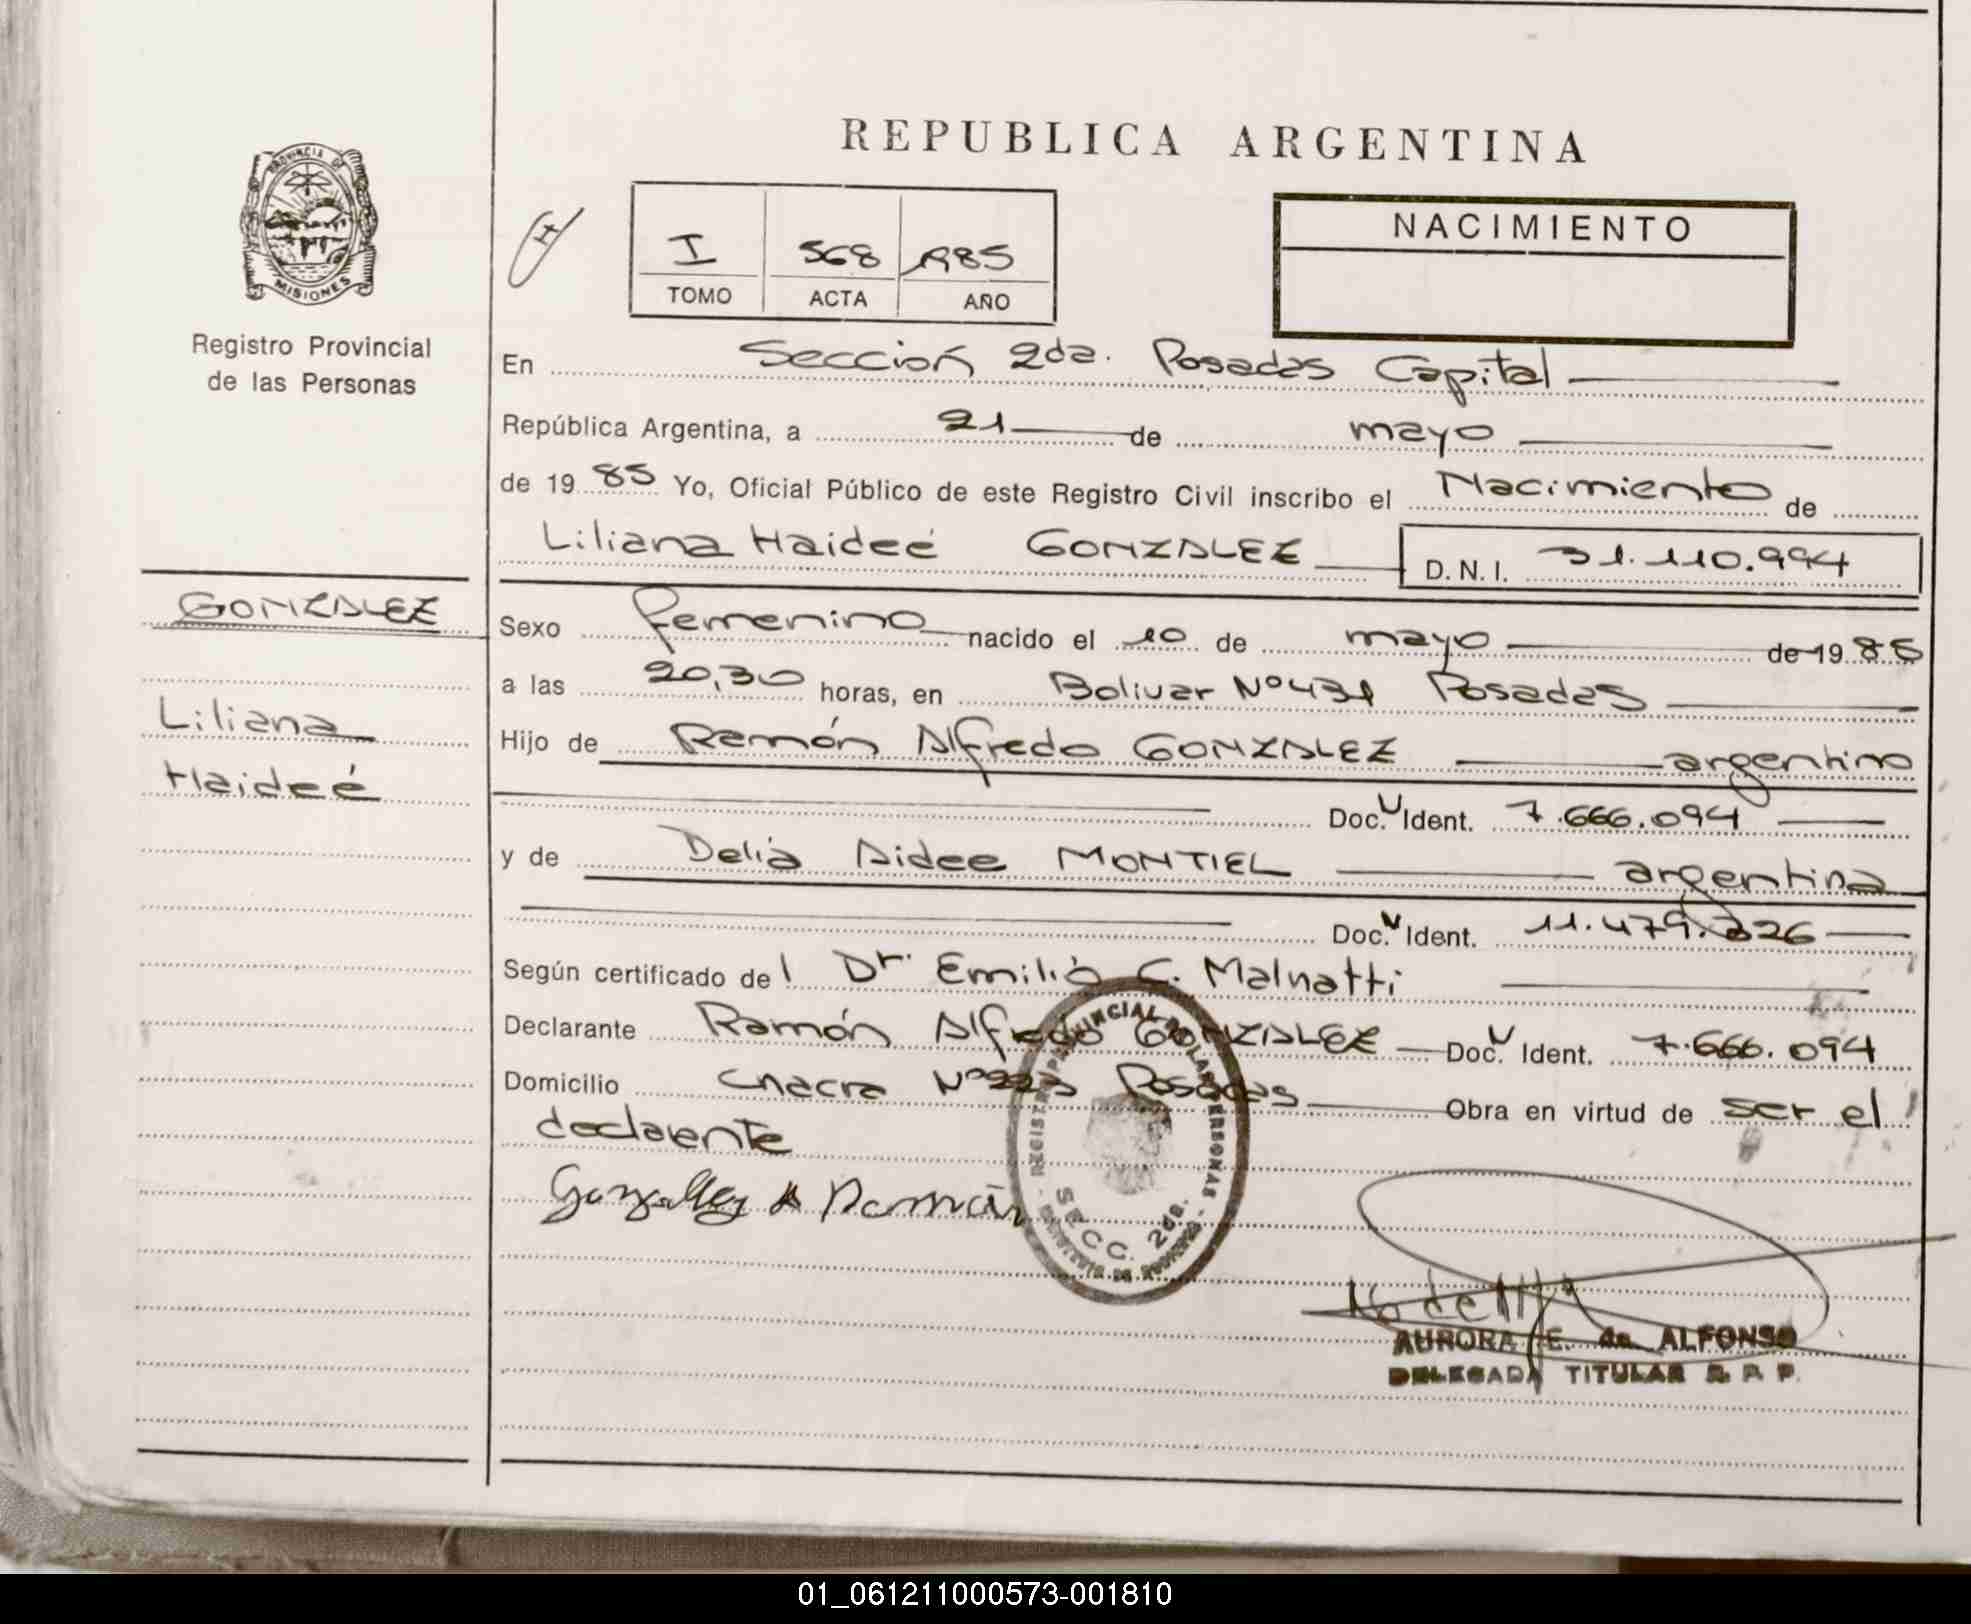 REPUBLICA ARGENTINA
PROVINCIA DE
MISIONES
Registro Provincial
de las Personas
I 568 1985
TOMO ACTA AÑO
NACIMIENTO
En Sección 2da. Posadas Capital
República Argentina, a 21 de mayo
de 19 85 Yo, Oficial Público de este Registro Civil inscribo el Nacimiento de
Liliana Haideé GONZALEZ D.N.I. 31.110.994
GONZALEZ
Liliana
Haideé
Sexo femenino nacido el 10 de mayo de 19 85
a las 20,30 horas, en Bolivar Nº 431 Posadas
Hijo de Ramón Alfredo GONZALEZ argentino
Doc. Ident. 7.666.094
y de Delia Aidee MONTIEL argentina
Doc. Ident. 11.479.326
Según certificado del Dr. Emilio C. Malnatti
Declarante Ramón Alfredo GONZALEZ Doc. Ident. 7.666.094
Domicilio Chacra Nº Posadas Obra en virtud de ser el
declarente
Gonzalez A Ramón
REGISTRO PROVINCIAL DE LAS PERSONAS
SECC. 2da.
AURORA E. de ALFONSO
DELEGADA TITULAR R. P. P.
01_061211000573-001810